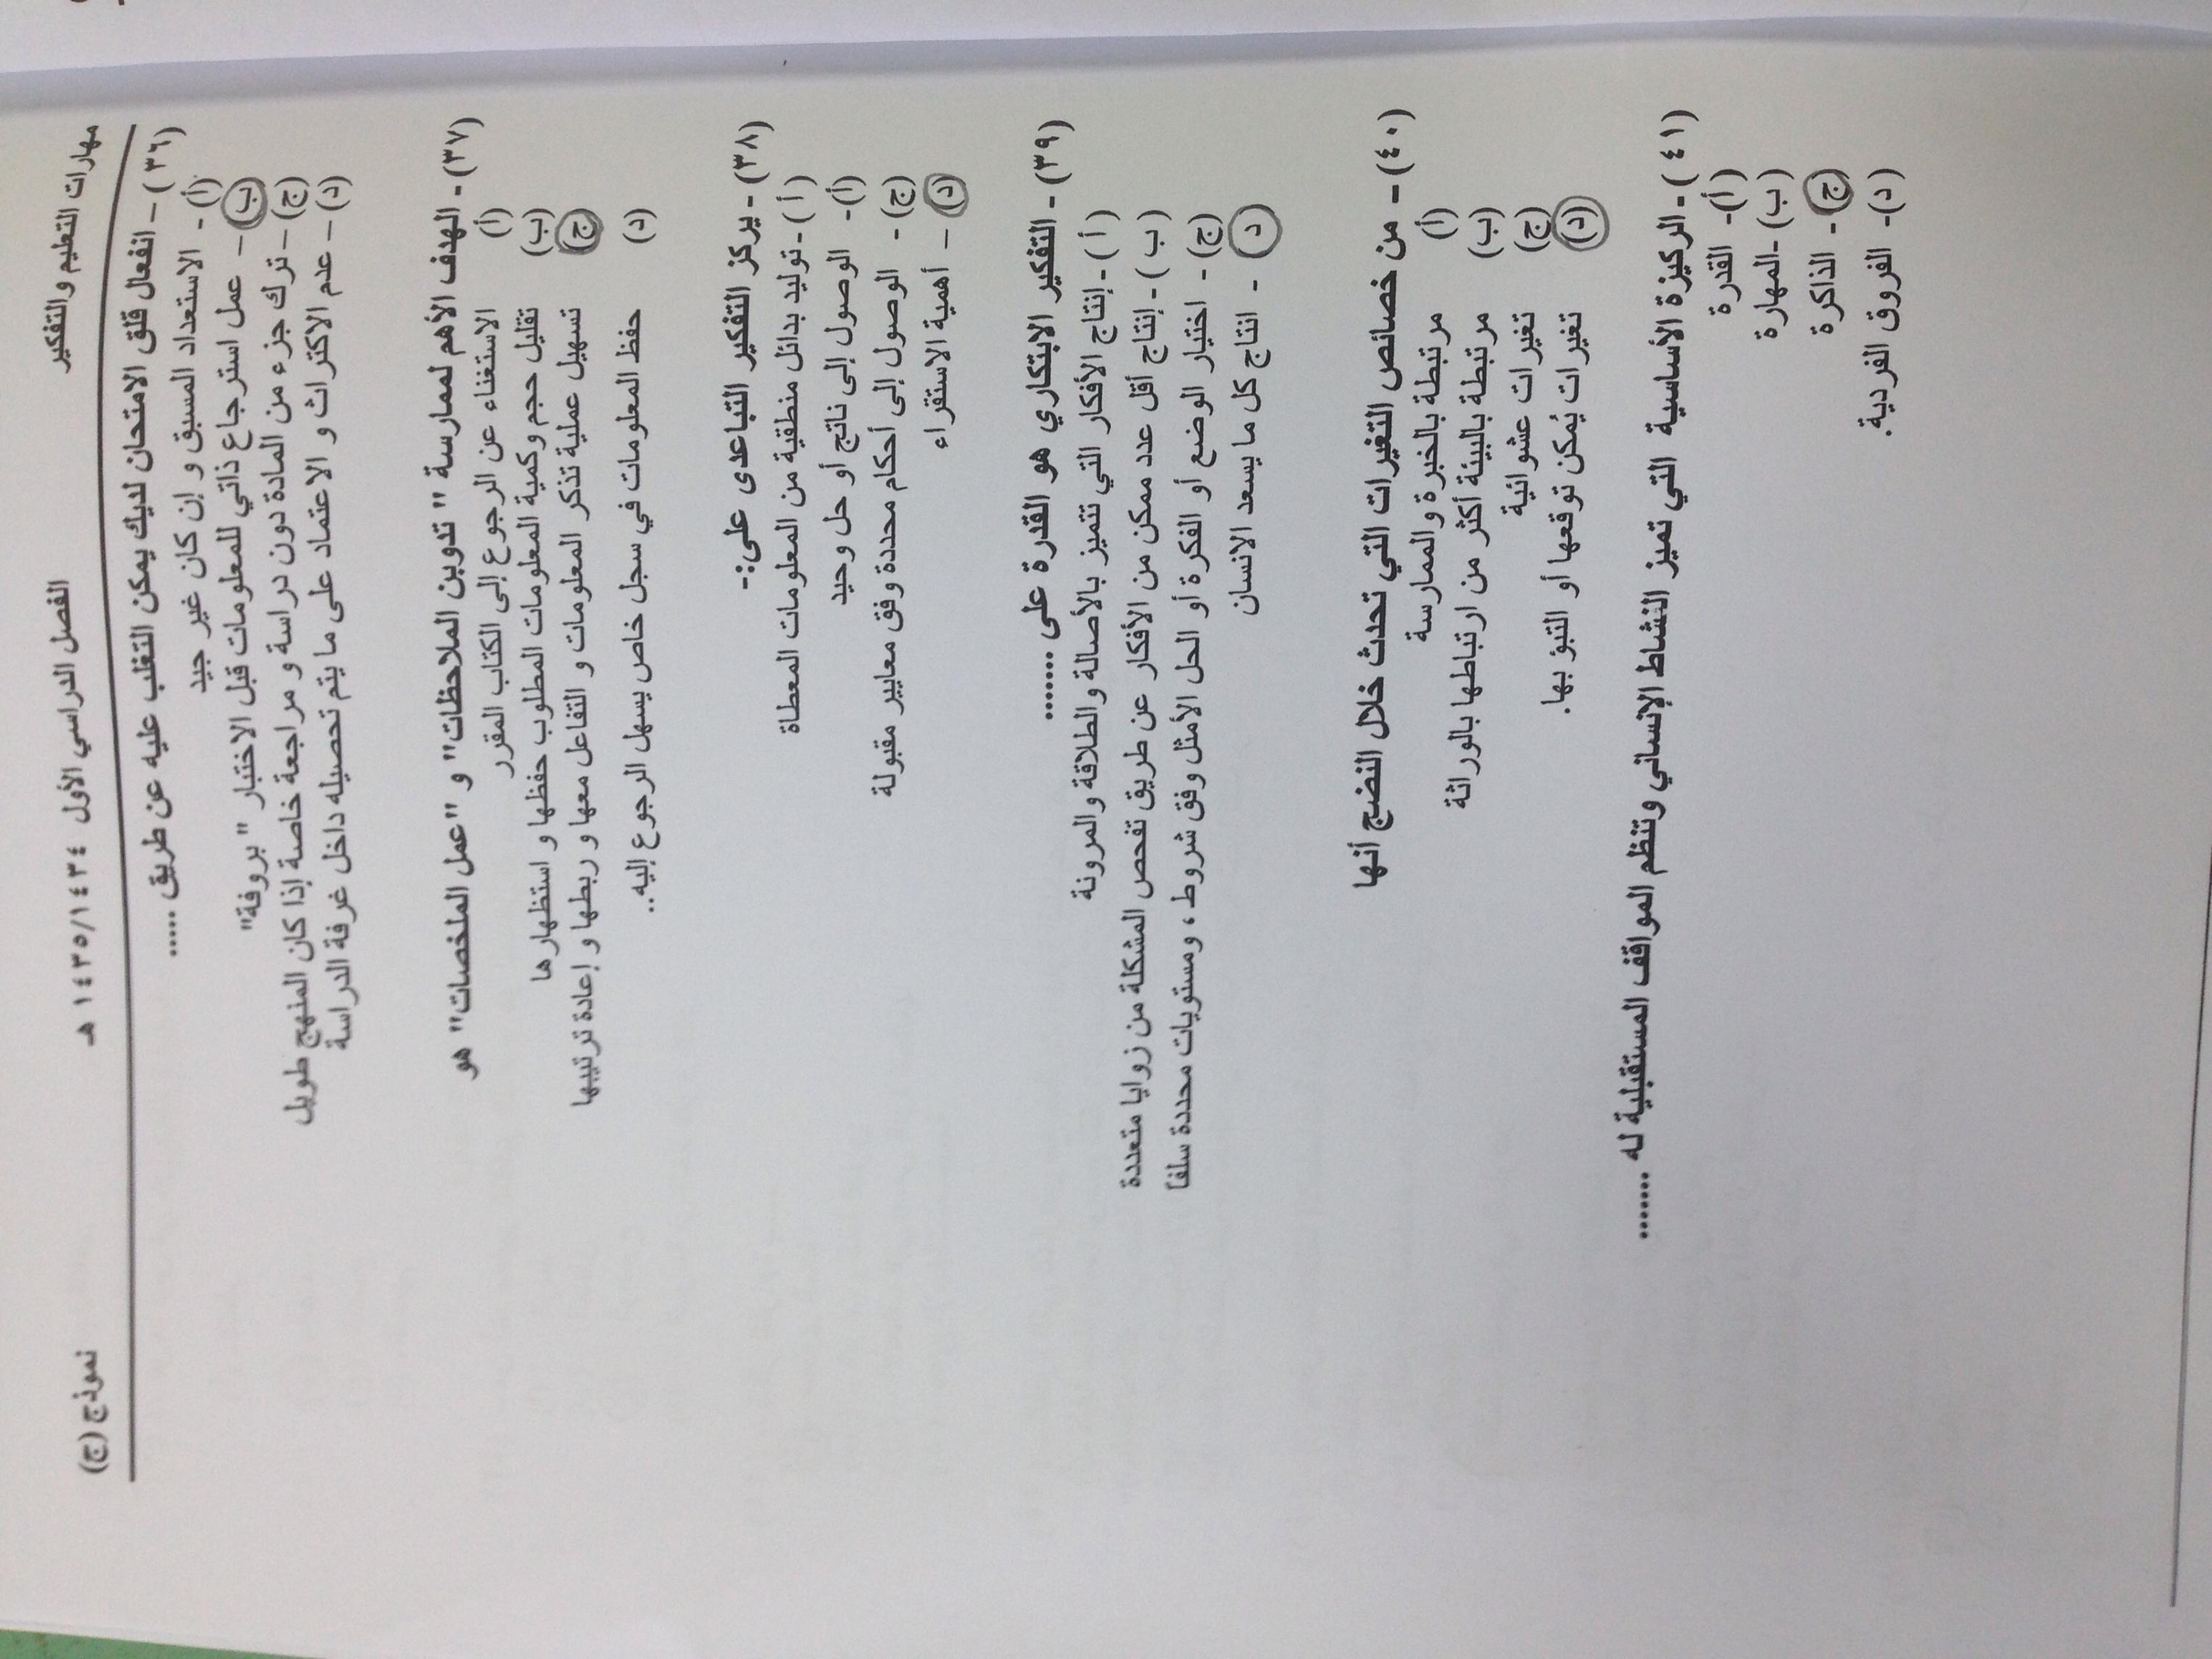 مهارات التعليم والتفكير الفصل الدراسي الأول ١٤٣٤/١٤٣٥ هـ نموذج (ج)
(٣٦) – انفعال قلق الامتحان لديك يمكن التغلب عليه عن طريق .....
(أ) - الاستعداد المسبق و إن كان غير جيد
(ب) – عمل استرجاع ذاتي للمعلومات قبل الاختبار "بروفة"
(ج) – ترك جزء من المادة دون دراسة و مراجعة خاصة إذا كان المنهج طويل
(د) – عدم الاكتراث و الاعتماد على ما يتم تحصيله داخل غرفة الدراسة
(٣٧) - الهدف الأهم لممارسة " تدوين الملاحظات" و "عمل الملخصات" هو
(أ) الاستغناء عن الرجوع إلى الكتاب المقرر
(ب) تقليل حجم وكمية المعلومات المطلوب حفظها و استظهارها
(ج) تسهيل عملية تذكر المعلومات و التفاعل معها و ربطها و إعادة ترتيبها
(د) حفظ المعلومات في سجل خاص يسهل الرجوع إليه..
(٣٨) - يركز التفكير التباعدى على:-
( أ ) - توليد بدائل منطقية من المعلومات المعطاة
(أ)- الوصول إلى ناتج أو حل وحيد
(ج) - الوصول إلى أحكام محددة وفق معايير مقبولة
(د) – أهمية الاستقراء
(٣٩) - التفكير الابتكاري هو القدرة على .......
( أ ) - إنتاج الأفكار التي تتميز بالأصالة والطلاقة والمرونة
( ب ) - إنتاج أقل عدد ممكن من الأفكار عن طريق تفحص المشكلة من زوايا متعددة
(ج) - اختيار الوضع أو الفكرة أو الحل الأمثل وفق شروط ، ومستويات محددة سلفاً
د - انتاج كل ما يسعد الانسان
(٤٠) – من خصائص التغيرات التي تحدث خلال النضج أنها
(أ) مرتبطة بالخبرة والممارسة
(ب) مرتبطة بالبيئة أكثر من ارتباطها بالوراثة
(ج) تغيرات عشوائية
(د) تغيرات يُمكن توقعها أو التبؤ بها.
(٤١ ) - الركيزة الأساسية التي تميز النشاط الإنساني وتنظم المواقف المستقبلية له ........
(أ)- القدرة
( ب) -المهارة
(ج) - الذاكرة
(د)- الفروق الفردية.